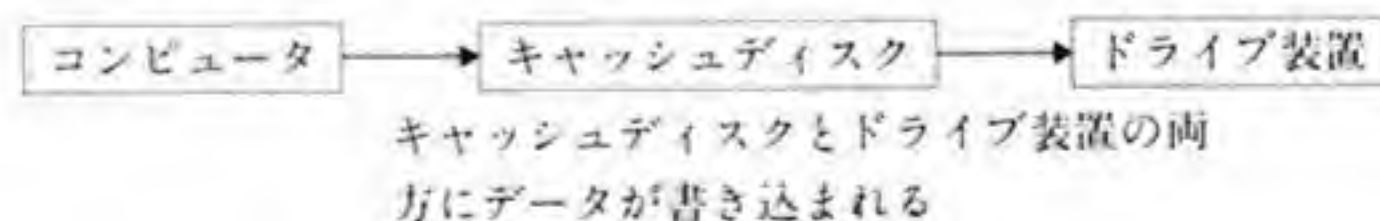 コンピュータ キャッシュディスク ドライブ装置
キャッシュディスクとドライブ装置の両
方にデータが書き込まれる